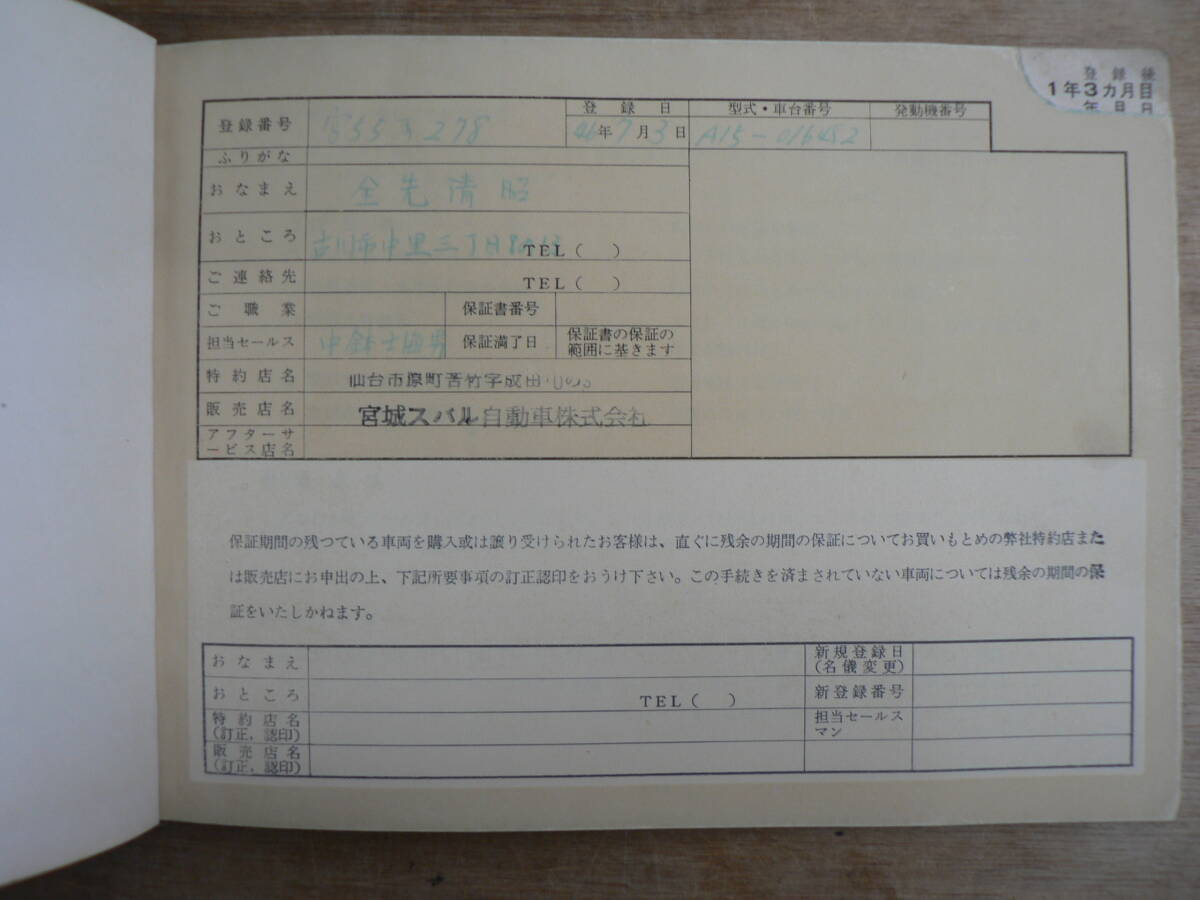 登録後
1年3カ月目
年 月 日
登録番号 宮55 278 登録日 46年7月3日 型式・車台番号 A15-016482 発動機番号
ふりがな
おなまえ 全先清昭
おところ 古川市中里三丁目 TEL( )
ご連絡先 TEL( )
ご職業 保証書番号
担当セールス 保証満了日 保証書の保証の
範囲に基きます
特約店名 仙台市原町苦竹字成田
販売店名 宮城スバル自動車株式会社
アフターサ
ービス店名
保証期間の残つている車両を購入或は譲り受けられたお客様は、直ぐに残余の期間の保証についてお買いもとめの弊社特約店また
は販売店にお申出の上、下記所要事項の訂正認印をおうけ下さい。この手続きを済まされていない車両については残余の期間の保
証をいたしかねます。
おなまえ 新規登録日
(名儀変更)
おところ TEL( ) 新登録番号
特約店名 担当セールス
(訂正、認印) マン
販売店名
(訂正、認印)